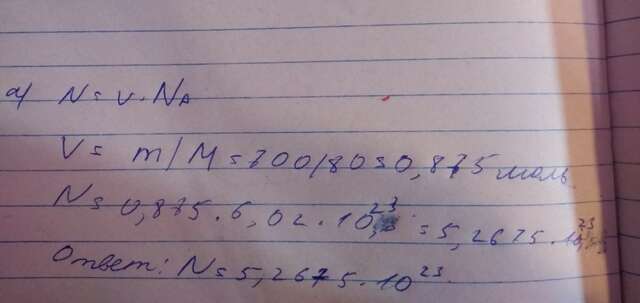 а) N = ν · NA
ν = m/M = 700/80 = 0,875 моль.
N = 0,875 · 6,02 · 10²³ = 5,2675 · 10²³
Ответ: N = 5,2675 · 10²³.